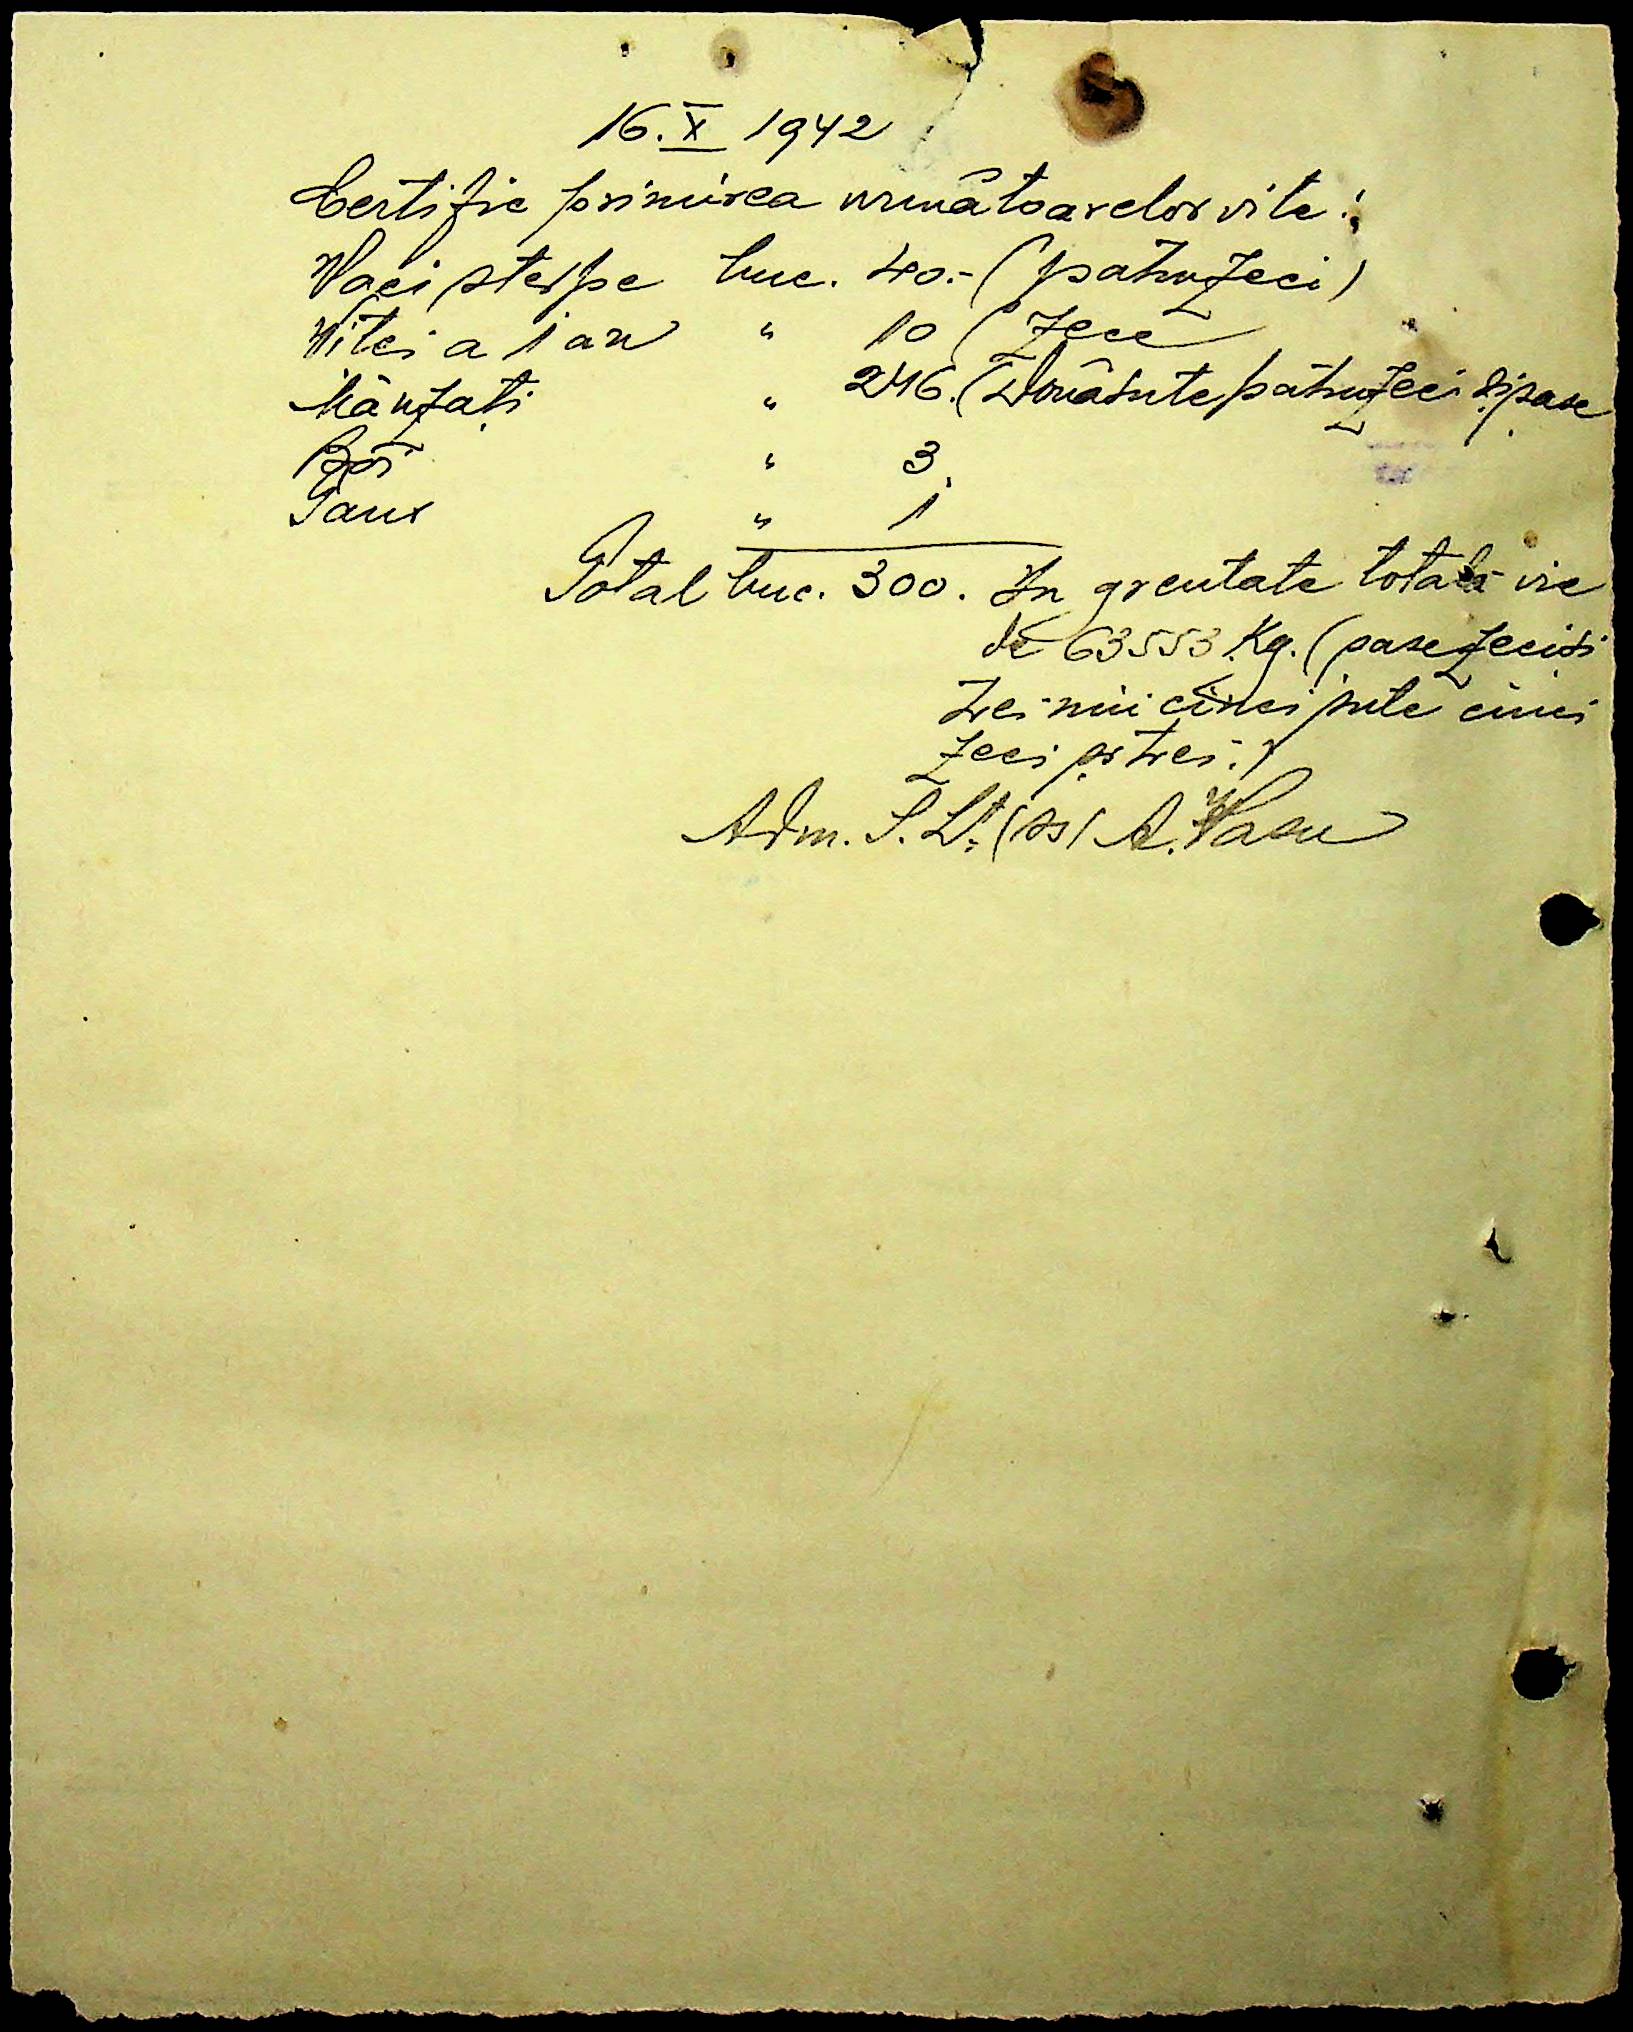 16.X 1942
Certific primirea următoarelor vite:
Vaci sterpe buc. 40.- (patruzeci)
Vitei a 1 an " 10 (Zece
Mânzați " 246. (Douăsute patruzeci și șase
Boi " 3.
Taur " 1
Total buc. 300. In greutate totală vie
de 63553 Kg. (șasezeci și
trei mii cinci sute cinci
zeci și trei.)
Adm. S. Lt. (ss) A. Vasu